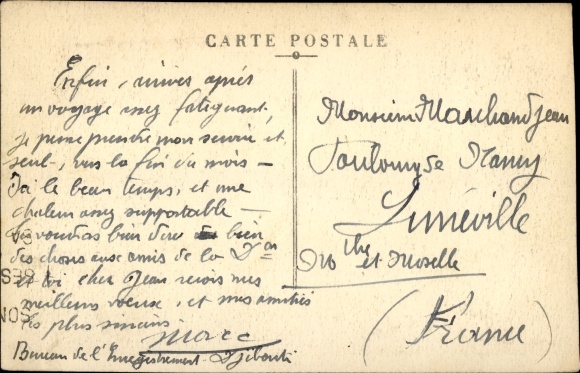 CARTE POSTALE
Enfin, arrivés après
un voyage assez fatiguant,
je pense prendre mon service ici
seul, vers la fin du mois —
J'ai le beau temps, et une
chaleur assez supportable —
Tu voudras bien dire bien
des choses aux amis de la Don
et toi cher Jean reçois mes
meilleurs voeux, et mes amitiés
les plus sincères
Marc
Bureau de l'Enregistrement - Djibouti
Monsieur Marchand Jean
de Nancy
Lunéville
Mthe et Moselle
(France)